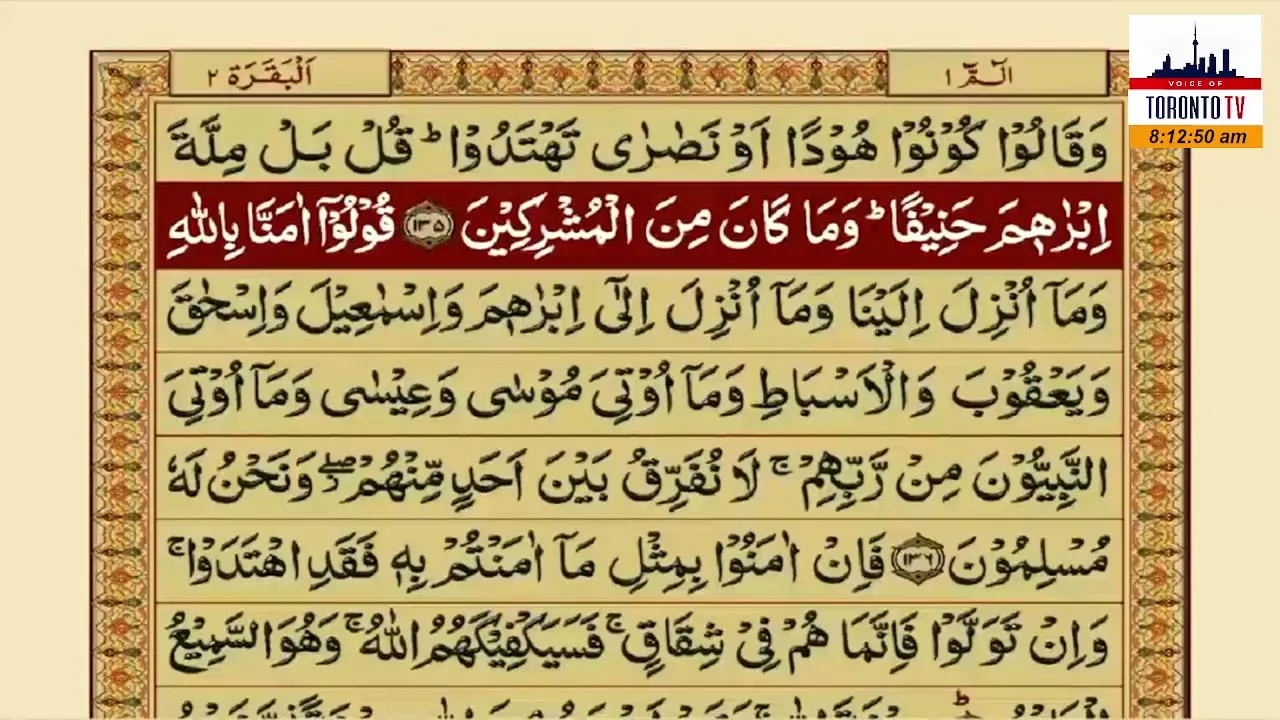 الٓمّٓ ١
اَلْبَقَرَة ٢
VOICE OF
TORONTO TV
8:12:50 am
وَقَالُوْا كُوْنُوْا هُوْدًا اَوْ نَصٰرٰى تَهْتَدُوْا ؕ قُلْ بَلْ مِلَّةَ
اِبْرٰهٖمَ حَنِيْفًا ؕ وَمَا كَانَ مِنَ الْمُشْرِكِيْنَ ١٣٥ قُوْلُوْٓا اٰمَنَّا بِاللّٰهِ
وَمَآ اُنْزِلَ اِلَيْنَا وَمَآ اُنْزِلَ اِلٰٓى اِبْرٰهٖمَ وَاِسْمٰعِيْلَ وَاِسْحٰقَ
وَيَعْقُوْبَ وَالْاَسْبَاطِ وَمَآ اُوْتِيَ مُوْسٰى وَعِيْسٰى وَمَآ اُوْتِيَ
النَّبِيُّوْنَ مِنْ رَّبِّهِمْ ۚ لَا نُفَرِّقُ بَيْنَ اَحَدٍ مِّنْهُمْ ۖ وَنَحْنُ لَهٗ
مُسْلِمُوْنَ ١٣٦ فَاِنْ اٰمَنُوْا بِمِثْلِ مَآ اٰمَنْتُمْ بِهٖ فَقَدِ اهْتَدَوْا ۚ
وَاِنْ تَوَلَّوْا فَاِنَّمَا هُمْ فِيْ شِقَاقٍ ۚ فَسَيَكْفِيْكَهُمُ اللّٰهُ ۚ وَهُوَ السَّمِيْعُ